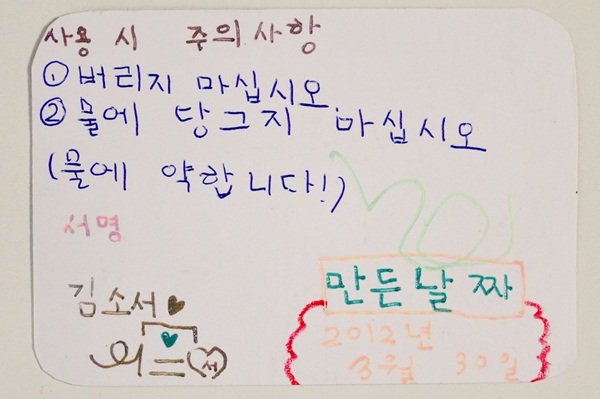 사용 시 주의사항
① 버리지 마십시오
② 물에 당그지 마십시오
(물에 약합니다!)
서명
김소서
서
만든날짜
2012년
3월 30일